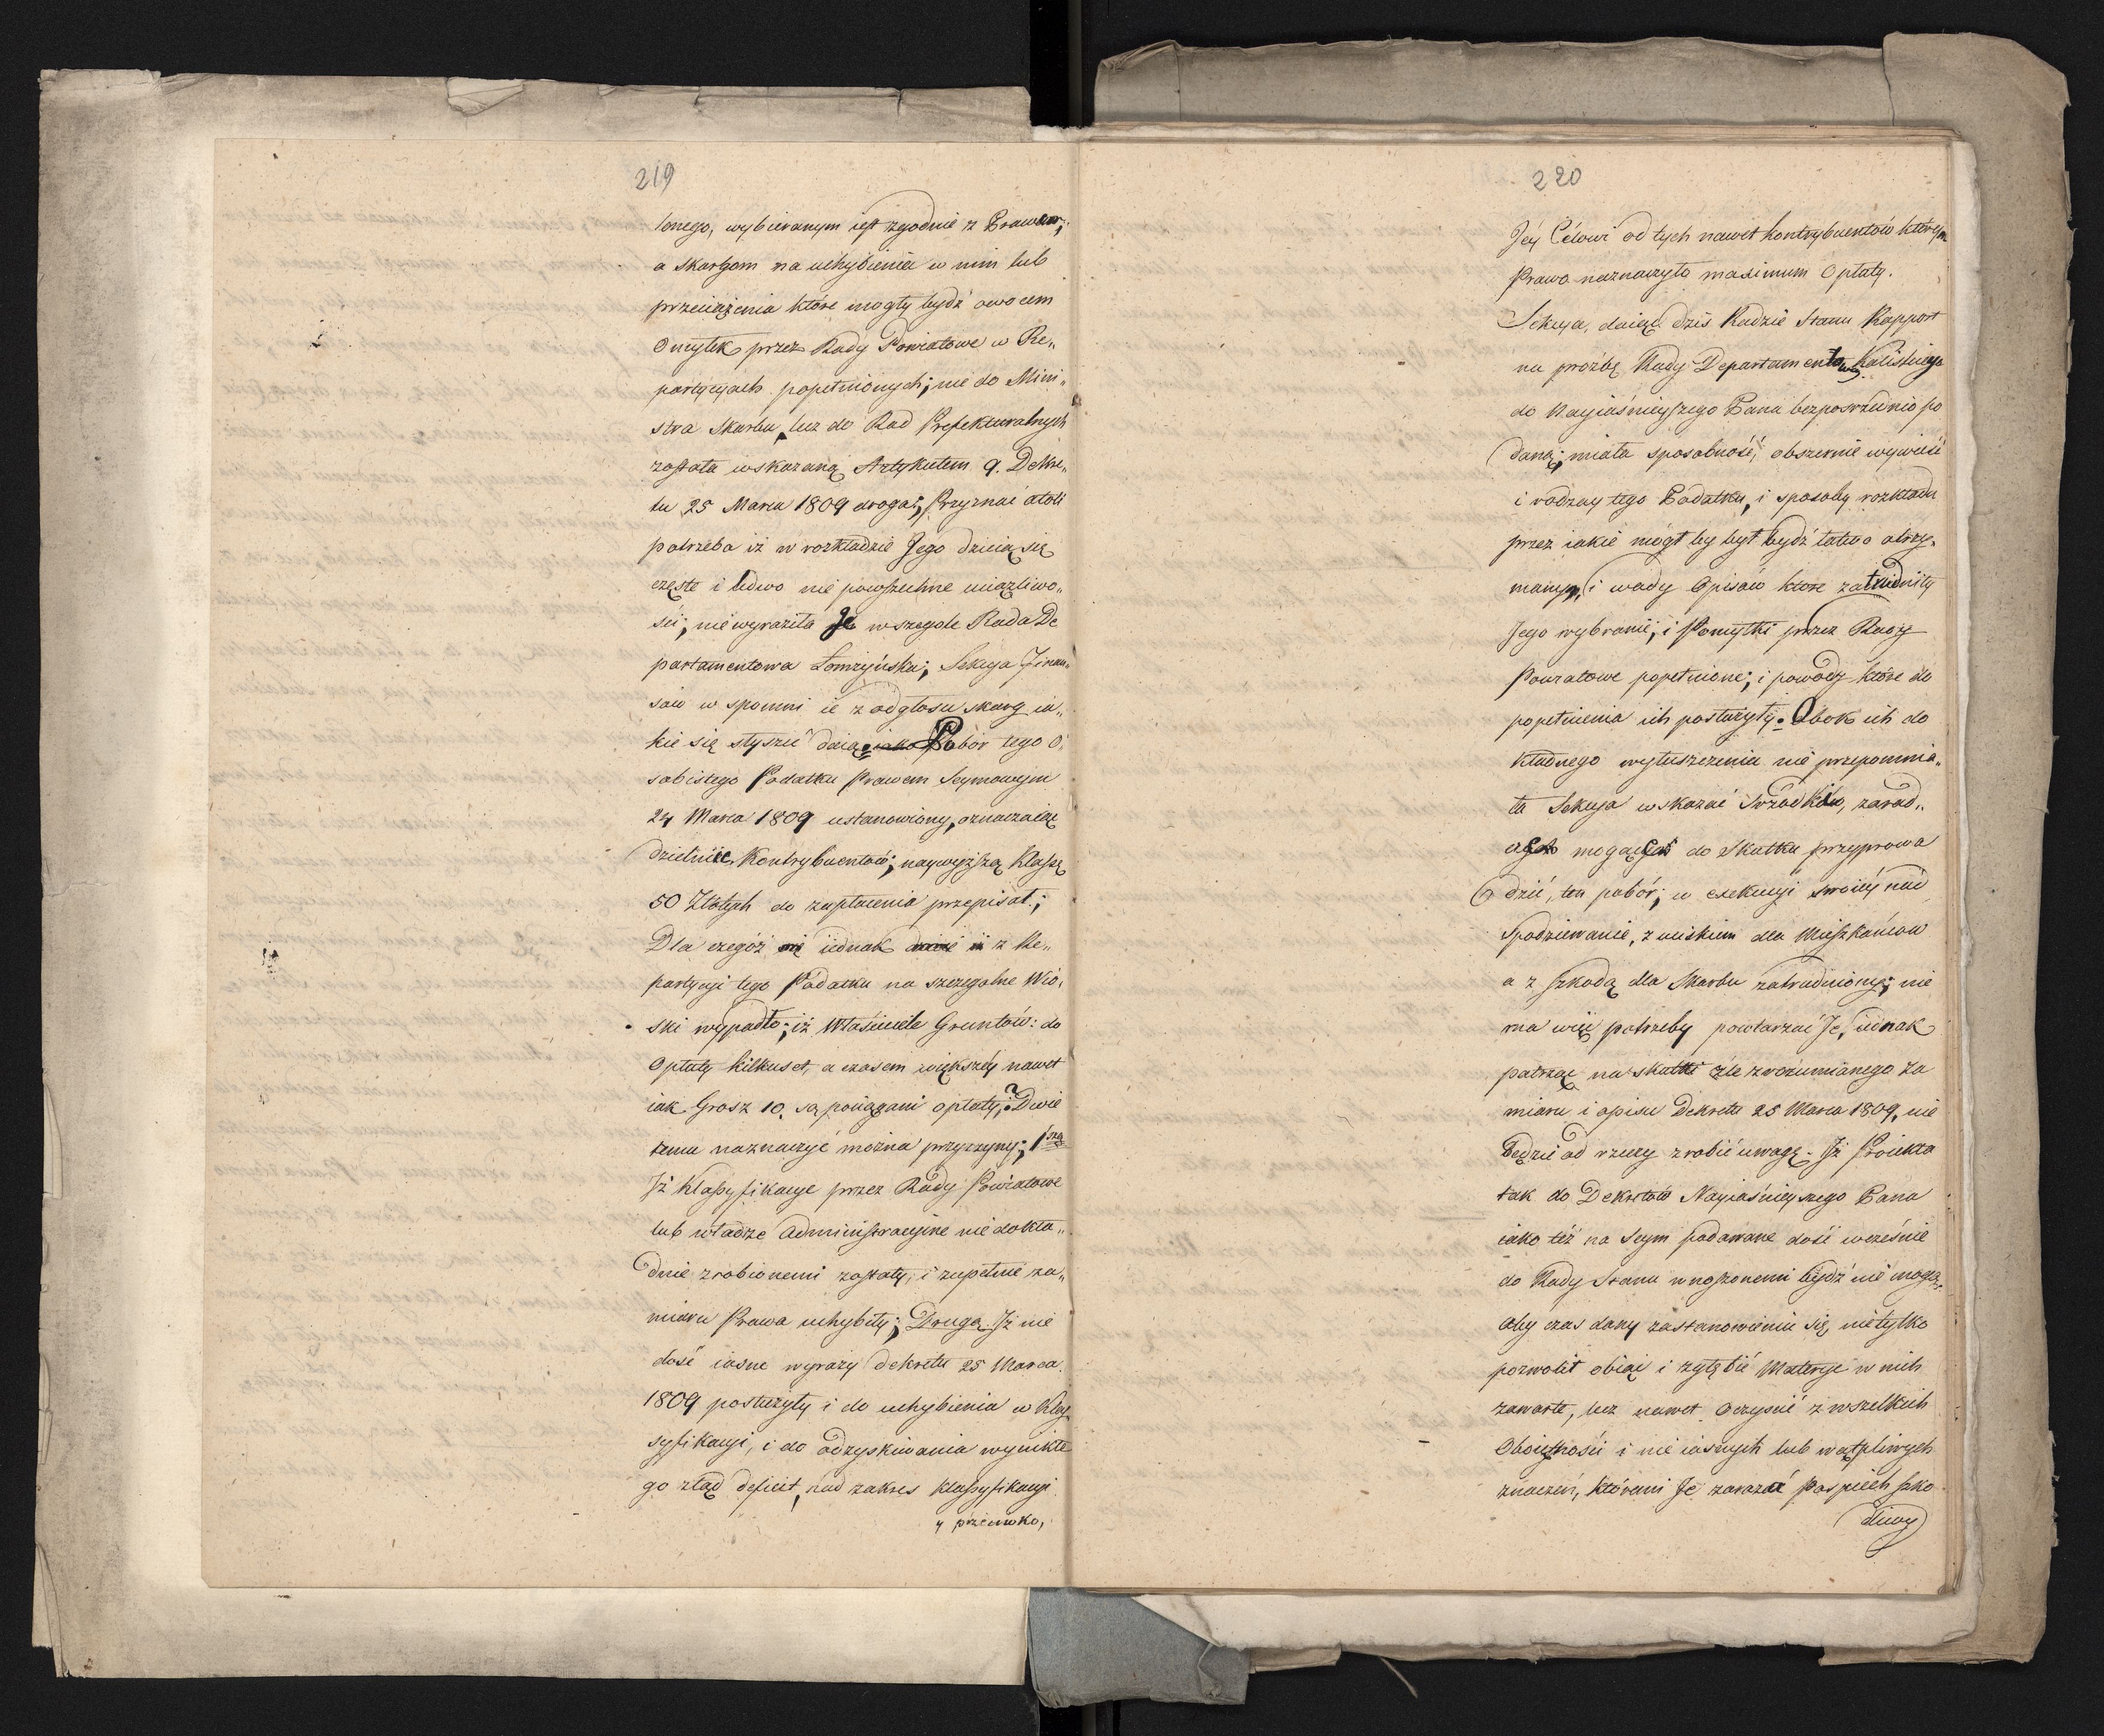 219
lonego, wybieranym iest zgodnie z Prawem;
a skargom na uchybienia w nim lub
przeciążenia które mogły bydź owocem
Omyłek przez Rady Powiatowe w Re„
partycyach popełnionych; nie do Mini„
stra Skarbu, lecz do Rad Prefekturalnych
została wskazaną Artykułem 9. Dekre„
tu 25 Marca 1809 droga; Przyznać atoli
potrzeba iż w rozkładzie Jego dzieią się
częste i ledwo nie powszechne uciążliwo„
ści; nie wyraziła Je w szczegole Rada De
partamentowa Łomżyńska; Sekcya Finan„
sów wspomni ie z odgłosu skarg ia„
kie się słyszeć daią. Pobór tego O„
sobistego Podatku Prawem Seymowym
24 Marca 1809 ustanowiony, oznaczaiąc
dzielnie Kontrybuentów; naywyższą Klassę
50 Złotych do zapłacenia przepisał;
Dla czegóż iednak z Re„
partycyi tego Podatku na szczegolne Wio„
ski wypadło; iż Właściciele Gruntów: do
Opłaty kilkuset, a czasem większey nawet
iak Grosz 10. są pociągani opłaty,? Dwie
temu naznaczyć można przyczyny; 1sza
Iż Klassyfikacye przez Rady Powiatowe
lub władze Administracyine nie dokła„
dnie zrobionemi zostały, i zupełnie za„
miaru Prawa uchybiły; Druga. Iż nie
dość iasne wyrazy dekretu 25 Marca
1809 posłużyły i do uchybienia w Klas
syfikacyi, i do odzyskiwania wynikłe
go ztąd deficit, nad zakres klassyfikacyi
y przeciwko,
220
Jéy Célowi od tych nawet kontrybuentów którym
Prawo naznaczyło maximum Opłaty.
Sekcya, daiąc dziś Radzie Stanu Rapport
na proźbę Rady Departamentowey Kaliskiego
do Nayiaśnieyszego Pana bezpośrednio po
daną; miała sposobność, obszernie wywieść
i rodzay tego Podatku, i sposoby rozkładu
przez iakie mógł by był bydź łatwo otrzy„
manym, i wady Opisów które zatrudniły
Jego wybranie; i Pomyłki przez Rady
Powiatowe popełnione; i powody które do
popełnienia ich posłużyły. Obok ich do
kładnego wyłuszczenia nie przepomnia„
ła Sekcya wskazać środków, zarad„
mogących do Skutku przyprowa
dzić, ten pobór; w exekucyi swoiéy nad
Spodziewanie, z uciskiem dla Mieszkańców
a z szkodą dla Skarbu zatrudniony; nie
ma więc potrzeby powtarzać Je, iednak
patrząc na skutki źle zrozumianego Za
miaru i opisu Dekretu 25 Marca 1809, nie
będzie od rzeczy zrobić uwagę. Iż Proiekta
tak do Dekretów Nayiaśnieyszego Pana
iako też na Seym podawane dość wcześnie
do Rady Stanu wnoszonemi bydź nie mogą
aby czas dany zastanowieniu się, nietylko
pozwolił obiąć i zgłębić Materye w nich
zawarte, lecz nawet oczyścić z wszelkich
Oboiętności i nie iasnych lub wątpliwych
znaczeń, któremi Je zarazać Pospiech szko
dliwy